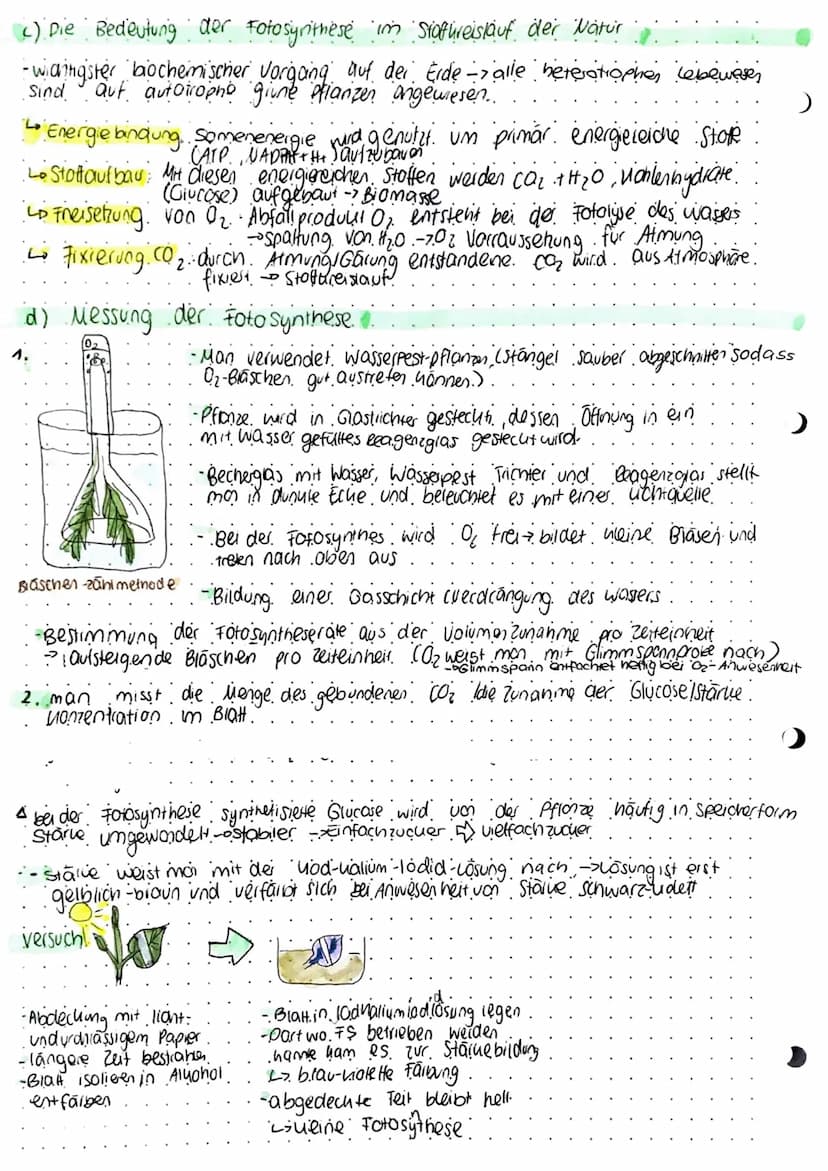 c) Die Bedeutung der Fotosynthese im Stoffkreislauf der Natur
-wichtigster biochemischer Vorgang auf der Erde → alle heterotrophen Lebewesen
sind auf autotrophe grüne Pflanzen angewiesen.
↳ Energiebindung Sonnenenergie wird genutzt um primär energiereiche Stoffe
(ATP, NADPH+H+) aufzubauen
↳ Stoffaufbau: Mit diesen energiereichen Stoffen werden CO2 + H2O, Kohlenhydrate
(Glucose) aufgebaut → Biomasse
↳ Freisetzung von O2 · Abfallprodukt O2 entsteht bei der Fotolyse des Wassers
→ Spaltung von H2O → O2 Vorraussetzung für Atmung
↳ Fixierung CO2: durch Atmung/Gärung entstandene CO2 wird aus Atmosphäre
fixiert → Stoffkreislauf
d) Messung der Fotosynthese
1.
O2
-Man verwendet Wasserpest-pflanzen, (Stängel sauber abgeschnitten sodass
O2-Bläschen gut austreten können.)
-Pflanze wird in Glastrichter gesteckt, dessen Öffnung in ein
mit Wasser gefülltes Reagenzglas gesteckt wird
-Becherglas mit Wasser, Wasserpest Trichter und Reagenzglas stellt
man in dunkle Ecke und beleuchtet es mit einer Lichtquelle
- Bei der Fotosynthes wird O2 frei → bildet kleine Blasen und
treten nach oben aus
Bläschen-zählmethode
-Bildung einer Gasschicht (Verdrängung des Wassers
-Bestimmung der Fotosyntheserate aus der Volumenzunahme pro Zeiteinheit
→ (aufsteigende Bläschen pro Zeiteinheit. (O2 weist man mit Glimmspanprobe nach)
→ Glimmspan entfachtet heftig bei O2-Anwesenheit
2. man misst die Menge des gebundenen CO2 /die Zunahme der Glucose/Stärke
konzentration im Blatt
bei der Fotosynthese synthetisierte Glucose wird von der Pflanze häufig in Speicherform
Stärke umgewandelt → stabiler → Einfachzucker ⇨ Vielfachzucker
- Stärke weist man mit der Iod-Kalium-Iodid-Lösung nach → Lösung ist erst
gelblich-braun und verfärbt sich bei Anwesenheit von Stärke schwarz-violett
Versuch
-Abdeckung mit licht-
undurchlässigem Papier
- längere Zeit bestrahlen
-Blatt isolieren in Alkohol
entfärben
- Blatt in Iodkaliumiodidlösung legen
-Dort wo FS betrieben werden
konnte kam es zur Stärkebildung
↳ blau-violette Färbung
-abgedeckte Teil bleibt hell
↳ keine Fotosynthese